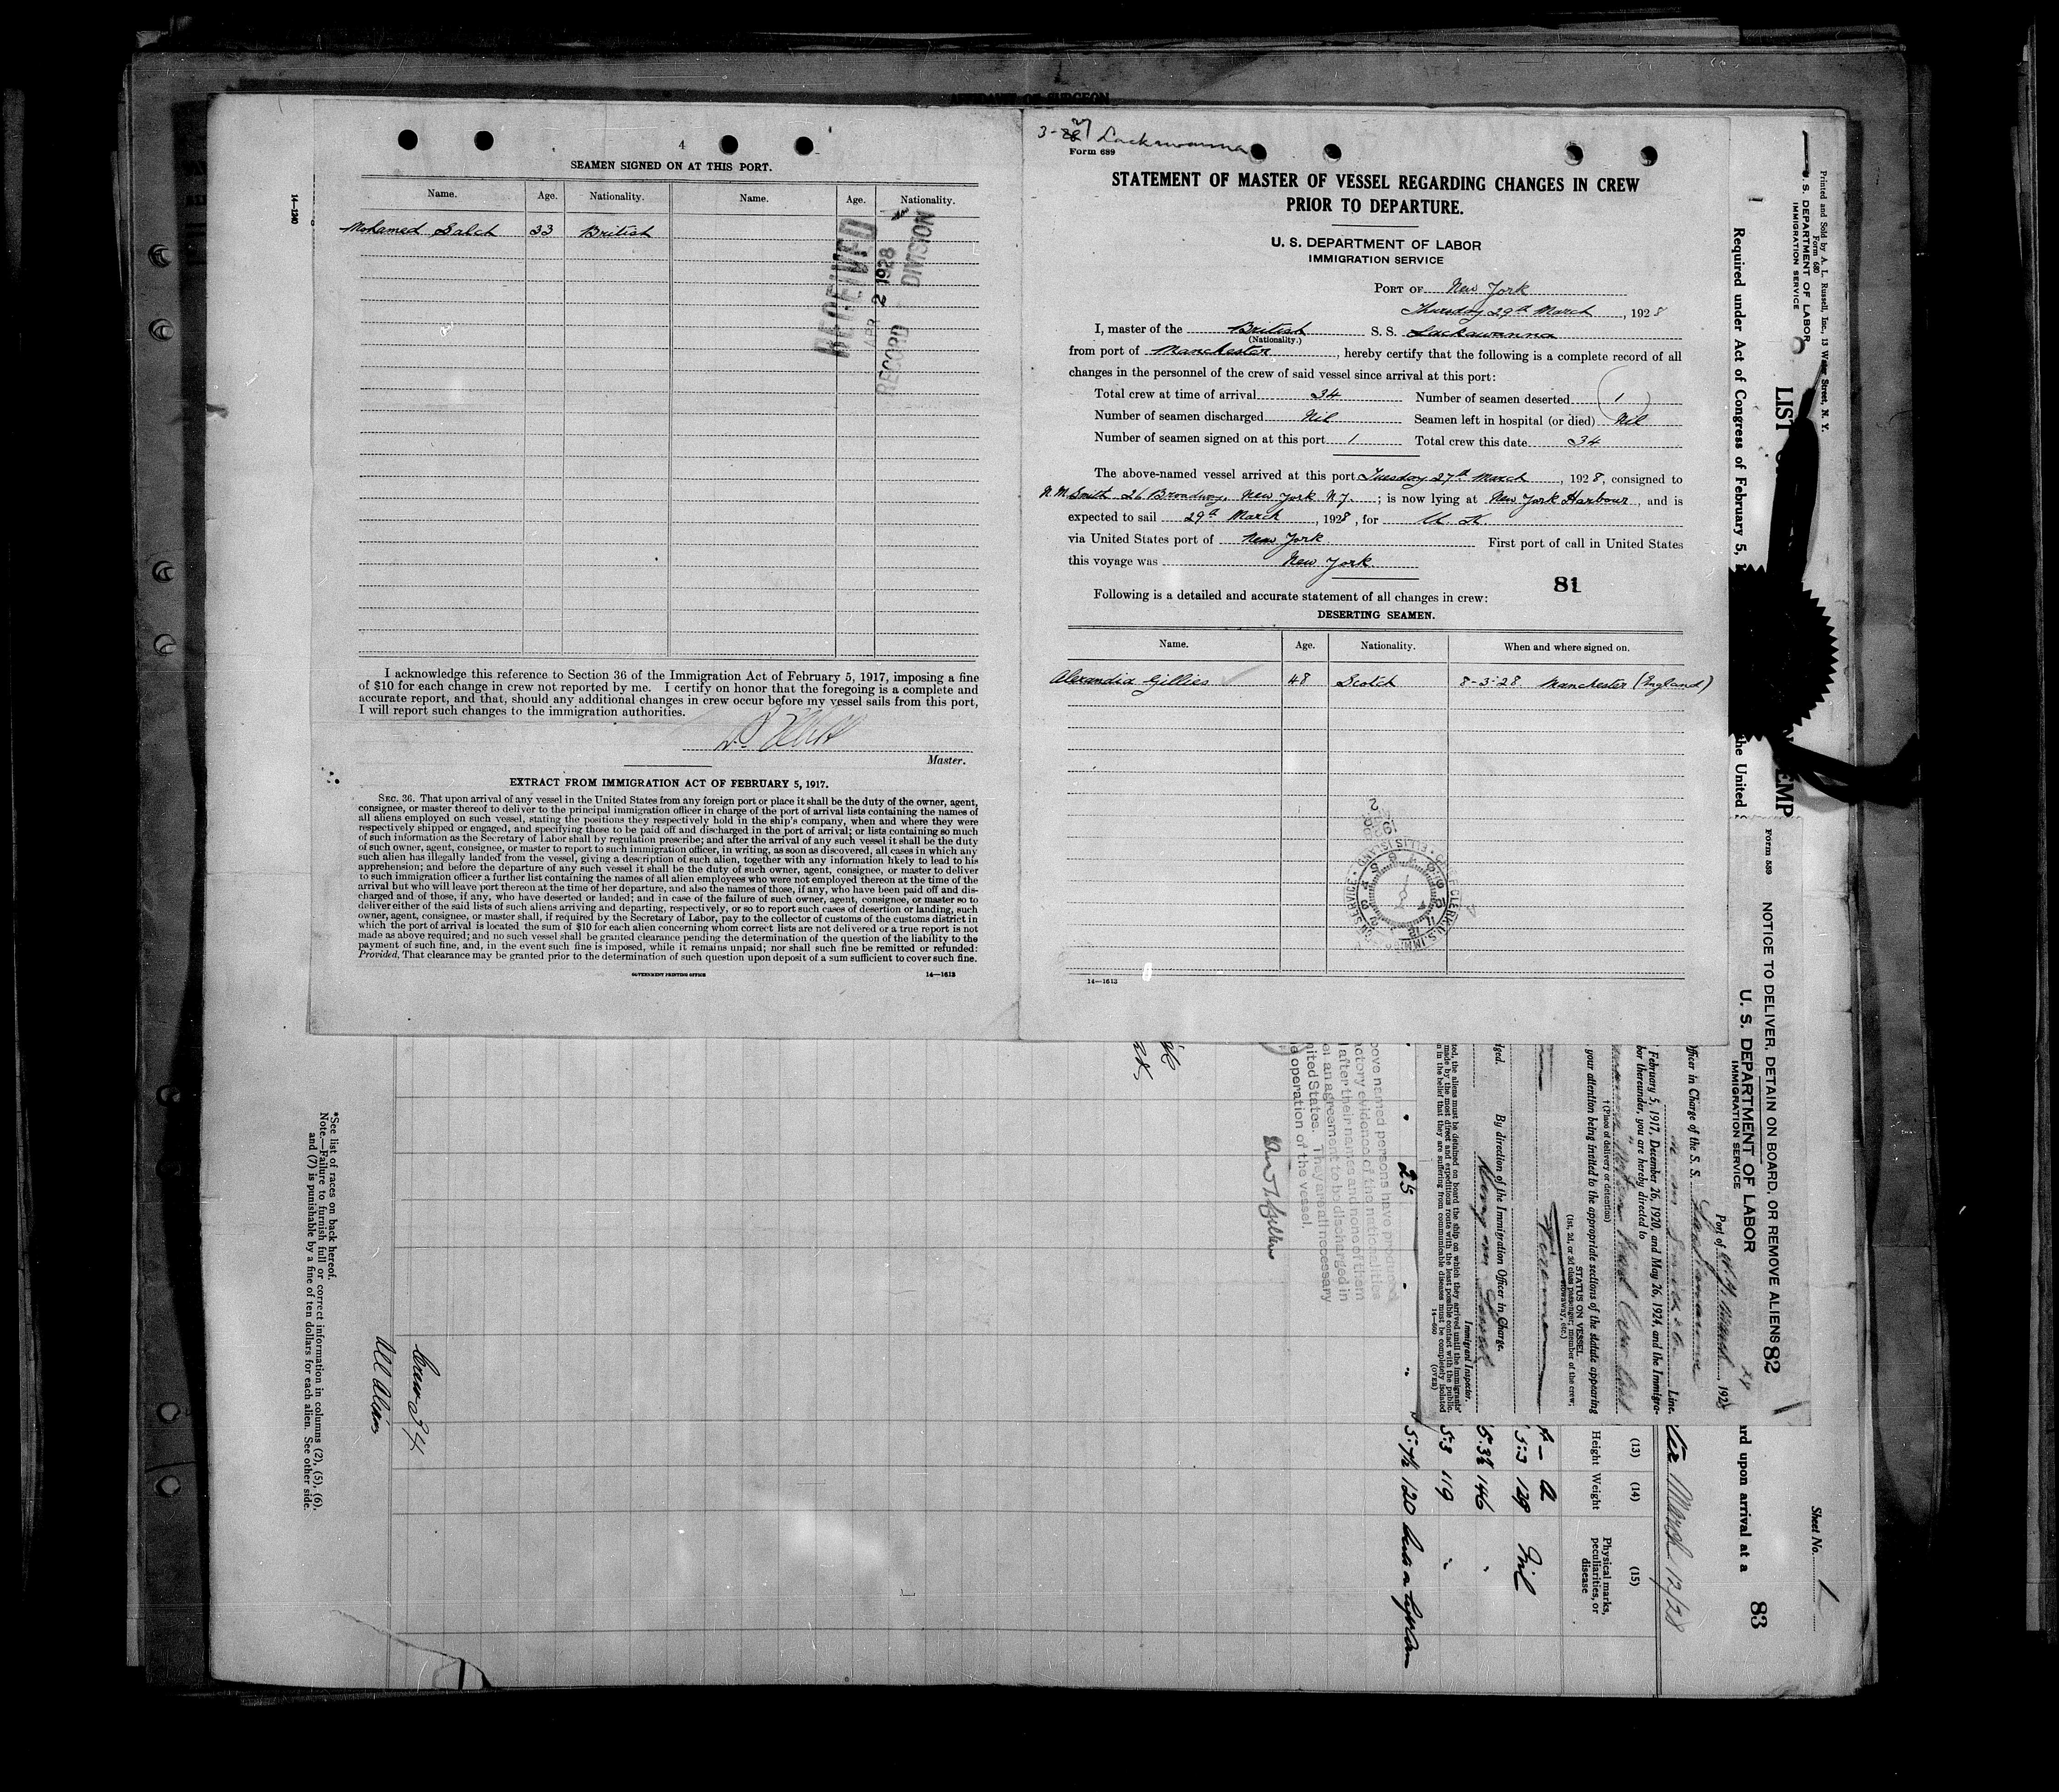 AFFIDAVIT OF SURGEON
4
SEAMEN SIGNED ON AT THIS PORT.
Name. Age. Nationality. Name. Age. Nationality.
Mohamed Saleh 33 British
RECEIVED
APR 2 1928
RECORD DIVISION
14—1240
I acknowledge this reference to Section 36 of the Immigration Act of February 5, 1917, imposing a fine
of $10 for each change in crew not reported by me. I certify on honor that the foregoing is a complete and
accurate report, and that, should any additional changes in crew occur before my vessel sails from this port,
I will report such changes to the immigration authorities.
Master.
EXTRACT FROM IMMIGRATION ACT OF FEBRUARY 5, 1917.
SEC. 36. That upon arrival of any vessel in the United States from any foreign port or place it shall be the duty of the owner, agent,
consignee, or master thereof to deliver to the principal immigration officer in charge of the port of arrival lists containing the names of
all aliens employed on such vessel, stating the positions they respectively hold in the ship's company, when and where they were
respectively shipped or engaged, and specifying those to be paid off and discharged in the port of arrival; or lists containing so much
of such information as the Secretary of Labor shall by regulation prescribe; and after the arrival of any such vessel it shall be the duty
of such owner, agent, consignee, or master to report to such immigration officer, in writing, as soon as discovered, all cases in which any
such alien has illegally landed from the vessel, giving a description of such alien, together with any information likely to lead to his
apprehension; and before the departure of any such vessel it shall be the duty of such owner, agent, consignee, or master to deliver
to such immigration officer a further list containing the names of all alien employees who were not employed thereon at the time of the
arrival but who will leave port thereon at the time of her departure, and also the names of those, if any, who have been paid off and dis-
charged and of those, if any, who have deserted or landed; and in case of the failure of such owner, agent, consignee, or master so to
deliver either of the said lists of such aliens arriving and departing, respectively, or so to report such cases of desertion or landing, such
owner, agent, consignee, or master shall, if required by the Secretary of Labor, pay to the collector of customs of the customs district in
which the port of arrival is located the sum of $10 for each alien concerning whom correct lists are not delivered or a true report is not
made as above required; and no such vessel shall be granted clearance pending the determination of the question of the liability to the
payment of such fine, and, in the event such fine is imposed, while it remains unpaid; nor shall such fine be remitted or refunded:
Provided, That clearance may be granted prior to the determination of such question upon deposit of a sum sufficient to cover such fine.
GOVERNMENT PRINTING OFFICE 14—1613
3-28 27 Lackawanna
Form 689
STATEMENT OF MASTER OF VESSEL REGARDING CHANGES IN CREW
PRIOR TO DEPARTURE.
U. S. DEPARTMENT OF LABOR
IMMIGRATION SERVICE
PORT OF New York
Thursday 29th March, 1928
I, master of the British S. S. Lackawanna
(Nationality.)
from port of Manchester, hereby certify that the following is a complete record of all
changes in the personnel of the crew of said vessel since arrival at this port:
Total crew at time of arrival 34 Number of seamen deserted (1)
Number of seamen discharged Nil Seamen left in hospital (or died) Nil
Number of seamen signed on at this port 1 Total crew this date 34
The above-named vessel arrived at this port Tuesday 27th March, 1928, consigned to
N. M. Smith 26 Broadway, New York N.Y.; is now lying at New York Harbour, and is
expected to sail 29th March, 1928, for U. K.
via United States port of New York First port of call in United States
this voyage was New York.
81
Following is a detailed and accurate statement of all changes in crew:
DESERTING SEAMEN.
Name. Age. Nationality. When and where signed on.
Alexandia Gillies 48 Scotch 8-3-28 Manchester (England)
14—1613
Printed and Sold by A. L. Russell, Inc., 13 Water Street, N. Y.
Form 680
U. S. DEPARTMENT OF LABOR
IMMIGRATION SERVICE
LIST
EMP
Required under Act of Congress of February 5,
the United
ard upon arrival at a
83
Sheet No. 1
March 12/28
Form 539
NOTICE TO DELIVER, DETAIN ON BOARD, OR REMOVE ALIENS 82
U. S. DEPARTMENT OF LABOR
IMMIGRATION SERVICE
Port of
192
fficer in Charge of the S. S. Lackawanna
Line.
February 5, 1917, December 26, 1920, and May 26, 1924, and the Immigra-
bor thereunder, you are hereby directed to
†(Place of delivery or detention)
your attention being invited to the appropriate sections of the statute appearing
STATUS ON VESSEL
(1st, 2d, or 3d class passenger; member of the crew;
stowaway, etc.)
By direction of the Immigration Officer in Charge.
Immigrant Inspector.
ted, the aliens must be detained on board the ship on which they arrived until the immigrants'
made by the most direct and expeditious route with the least possible contact with the public.
n in the belief that they are suffering from communicable diseases must be completely isolated
14—660 (OVER)
(13) (14) (15)
Height Weight Physical marks, peculiarities, or disease
5:3 129 Nil
5:3½ 146 "
5:3 119 "
25 5:7½ 120
bove named persons have produced
actory evidence of their nationalities
after their names and none of them
an agreement to be discharged in
nited States. They are all necessary
operation of the vessel.
Crew 34
All Alien
*See list of races on back hereof.
Note.—Failure to furnish full or correct information in columns (2), (5), (6),
and (7) is punishable by a fine of ten dollars for each alien. See other side.